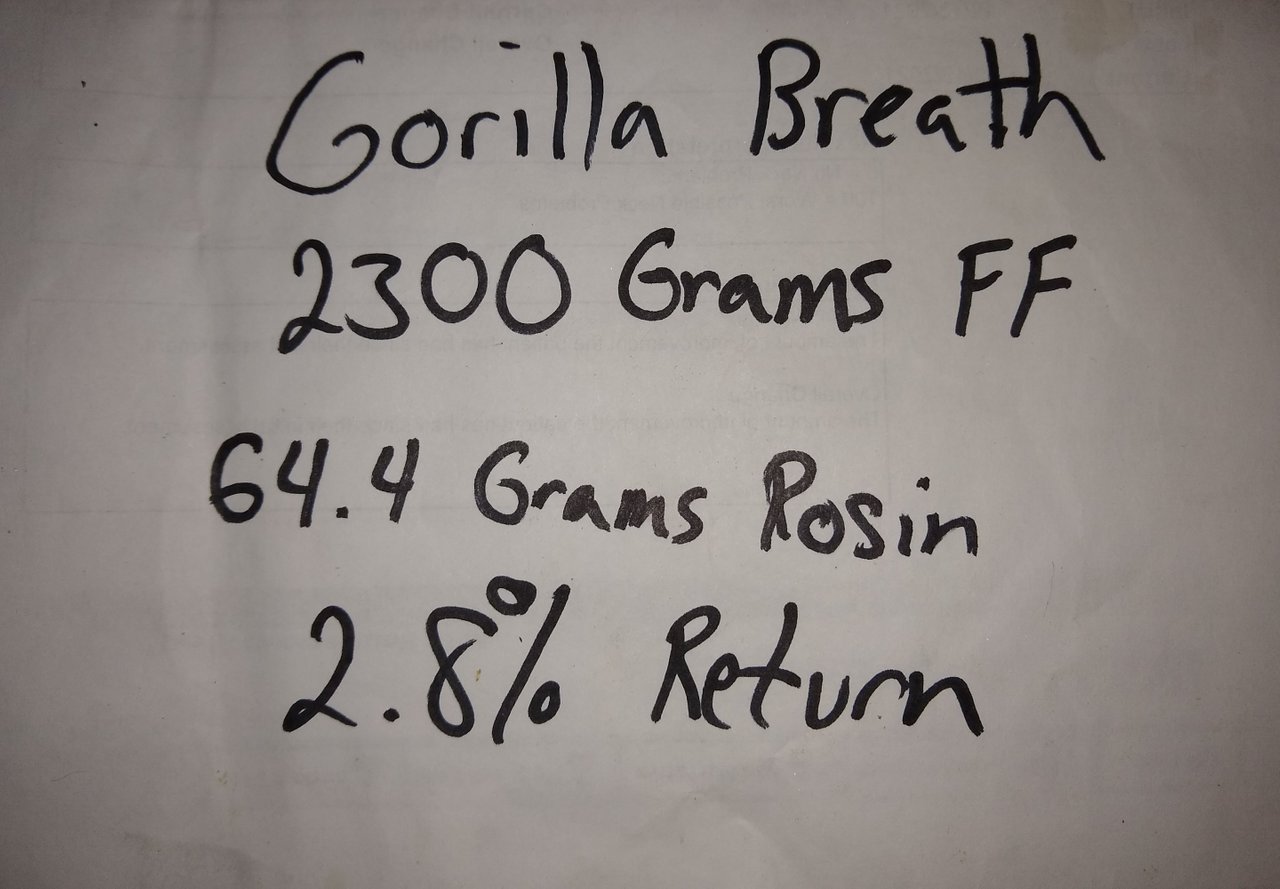 Gorilla Breath
2300 Grams FF
64.4 Grams Rosin
2.8% Return